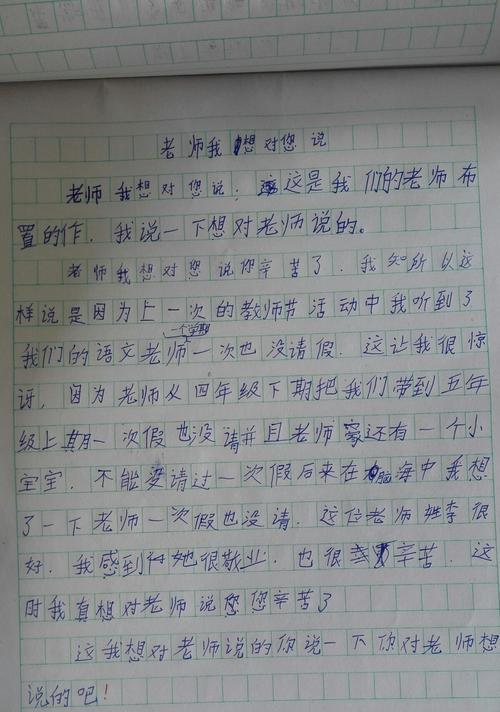 老师我想对您说
老师我想对您说；这是我们的老师布
置的作．我说一下想对老师说的。
老师我想对您说您辛苦了．我知所以这
样说是因为上一次的教师节活动中我听到了
一个学期
我们的语文老师一次也没请假．这让我很惊
讶．因为老师从四年级下期把我们带到五年
级上期一次假也没请并且老师家还有一个小
宝宝．不能没请过一次假后来在脑海中我想
了一下老师一次假也没请．这位老师姓李很
好．我感到她很敬业．也很辛苦．这
时我真想对老师说您您辛苦了
这我想对老师说的你说一下你对老师想
说的吧！